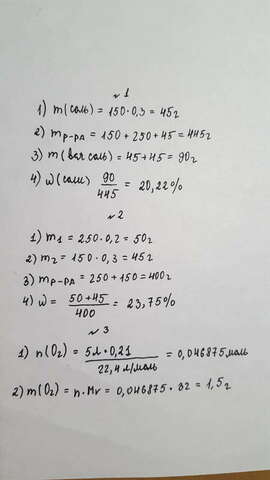 №1
1) m(соль) = 150·0,3 = 45г
2) mр-ра = 150 + 250 + 45 = 445г
3) m(вся соль) = 45+45 = 90г
4) ω(соли) 90/445 = 20,22%
№2
1) m1 = 250·0,2 = 50г
2) m2 = 150·0,3 = 45г
3) mр-ра = 250 + 150 = 400г
4) ω = 50+45/400 = 23,75%
№3
1) n(O2) = 5л·0,21/22,4л/моль = 0,046875моль
2) m(O2) = n·Mr = 0,046875·32 = 1,5г